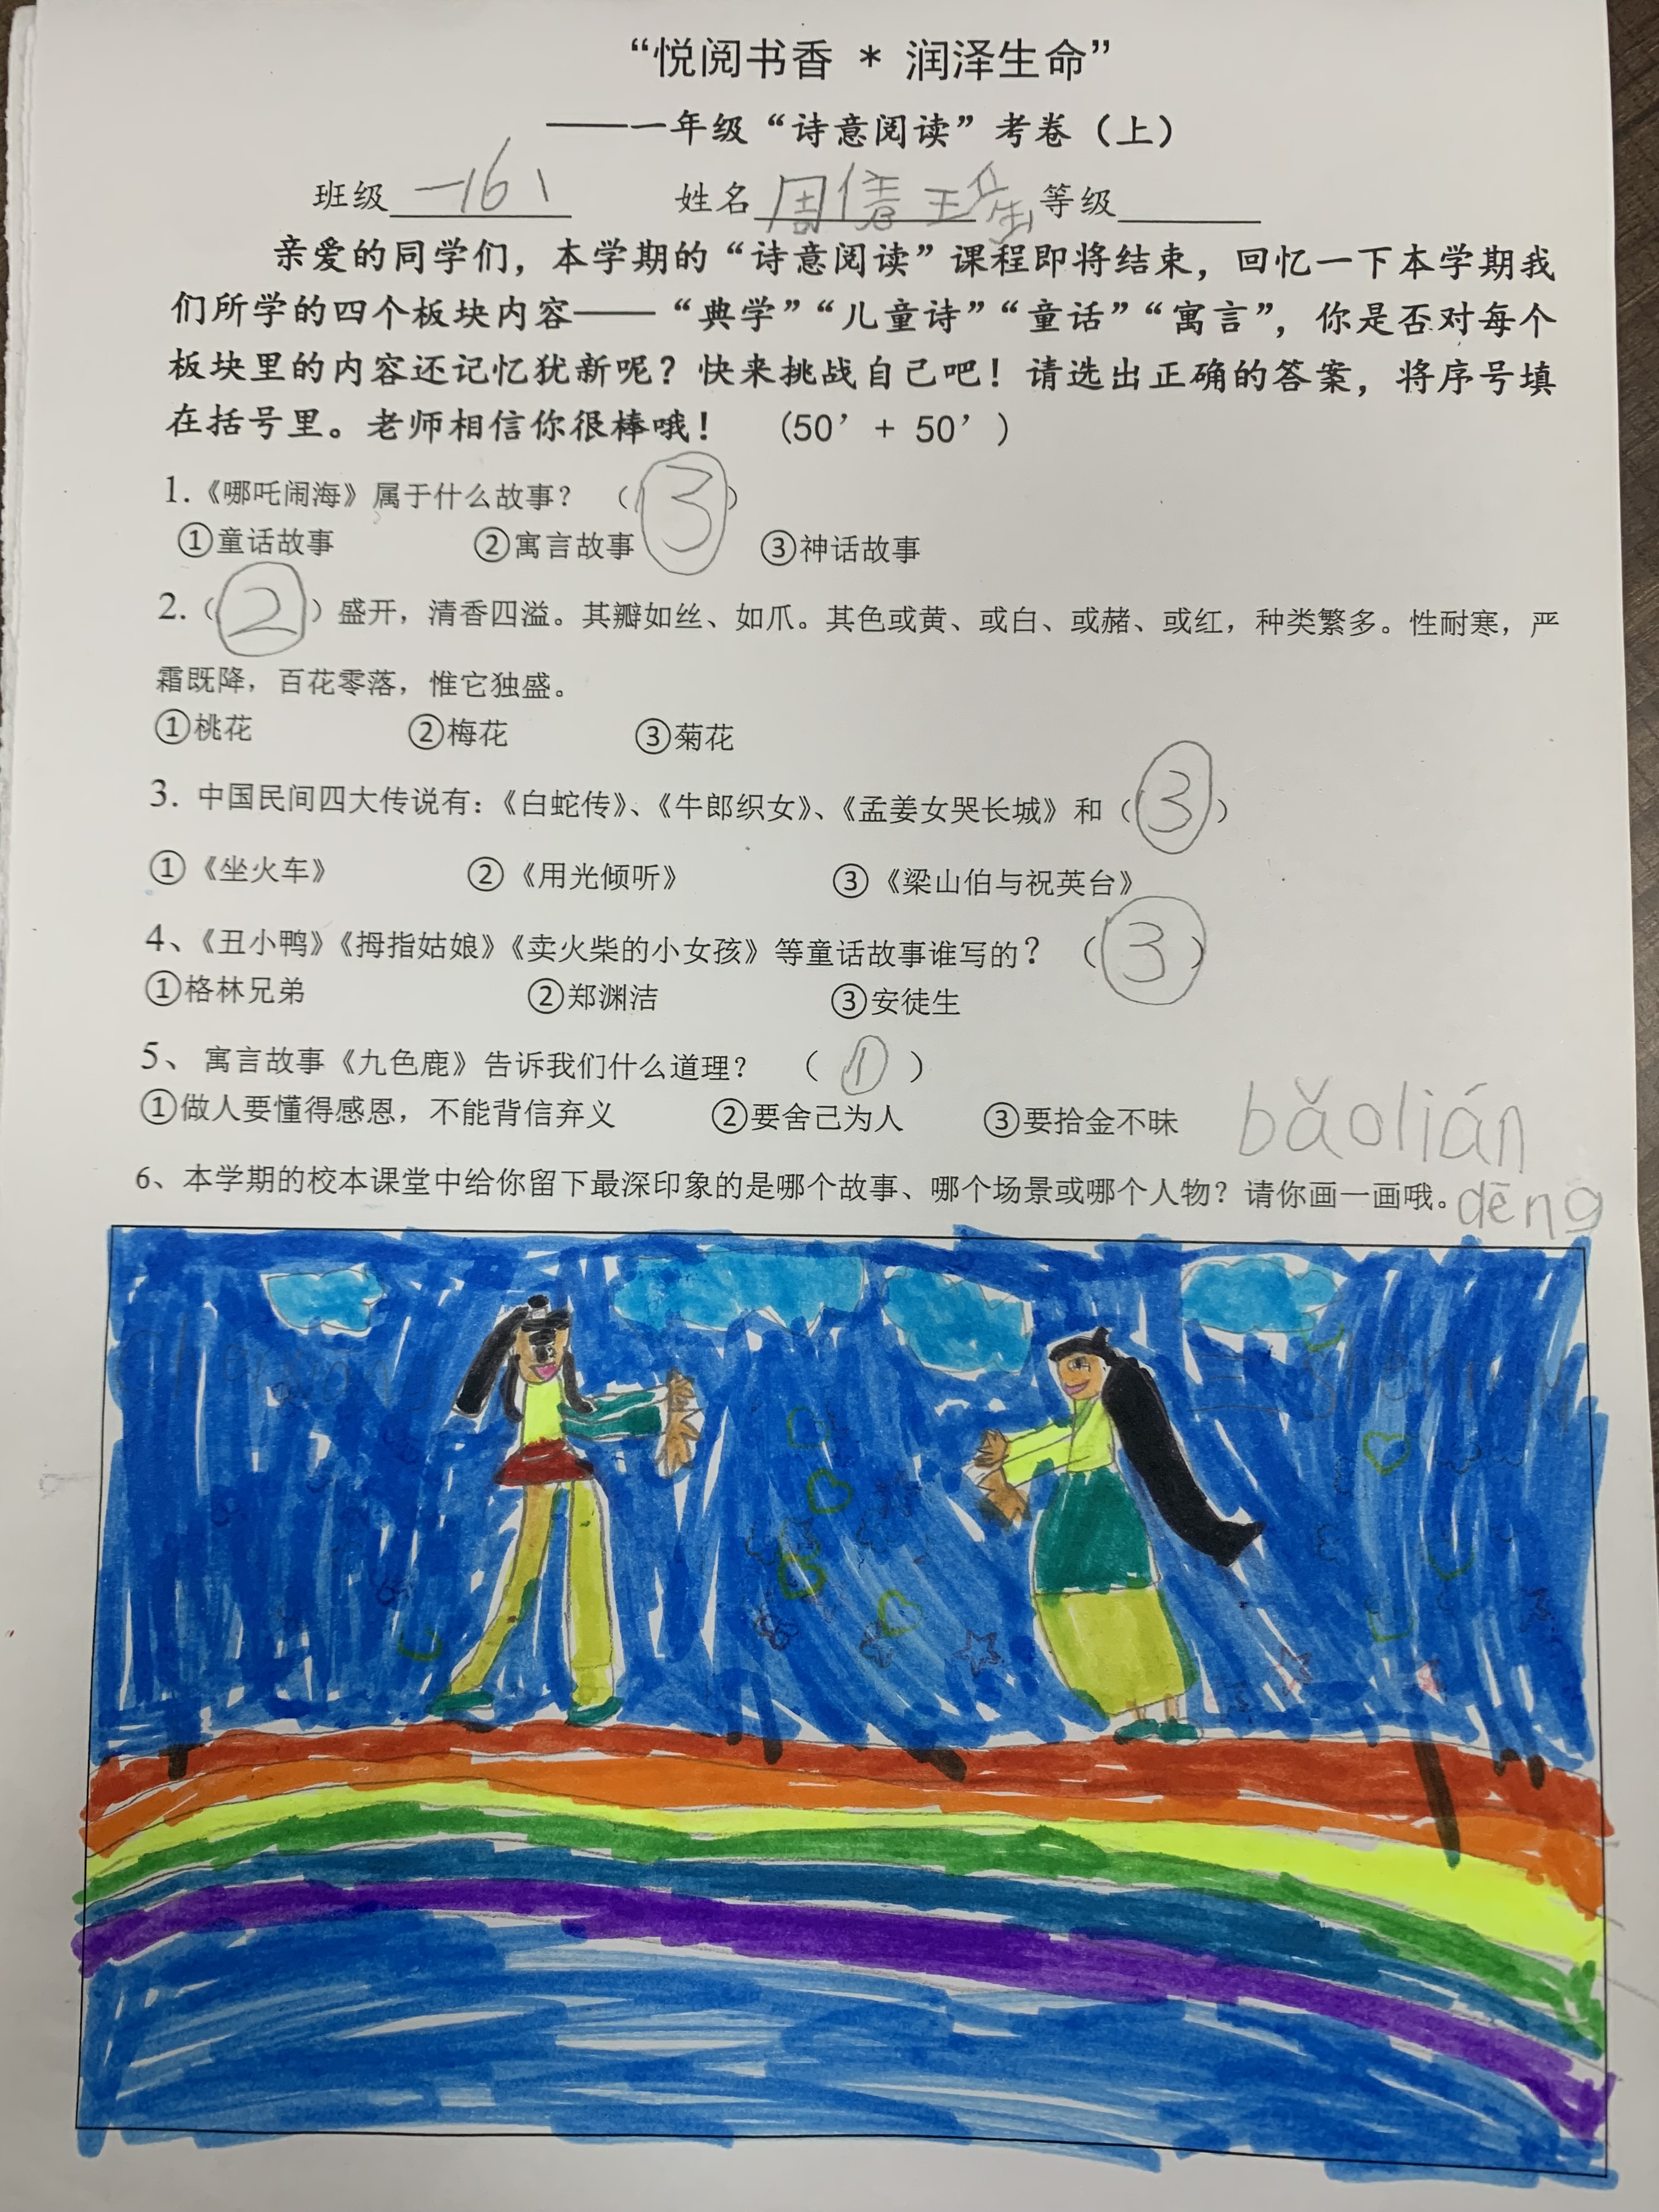 “悦阅书香 * 润泽生命”
——一年级“诗意阅读”考卷（上）
班级 一161 姓名 周倩 等级
亲爱的同学们，本学期的“诗意阅读”课程即将结束，回忆一下本学期我
们所学的四个板块内容——“典学”“儿童诗”“童话”“寓言”，你是否对每个
板块里的内容还记忆犹新呢？快来挑战自己吧！请选出正确的答案，将序号填
在括号里。老师相信你很棒哦！ (50’ + 50’ )
1.《哪吒闹海》属于什么故事？ （③）
①童话故事 ②寓言故事 ③神话故事
2.（②）盛开，清香四溢。其瓣如丝、如爪。其色或黄、或白、或赭、或红，种类繁多。性耐寒，严
霜既降，百花零落，惟它独盛。
①桃花 ②梅花 ③菊花
3. 中国民间四大传说有：《白蛇传》、《牛郎织女》、《孟姜女哭长城》和（③）
①《坐火车》 ②《用光倾听》 ③《梁山伯与祝英台》
4、《丑小鸭》《拇指姑娘》《卖火柴的小女孩》等童话故事谁写的？ （③）
①格林兄弟 ②郑渊洁 ③安徒生
5、 寓言故事《九色鹿》告诉我们什么道理？ （①）
①做人要懂得感恩，不能背信弃义 ②要舍己为人 ③要拾金不昧
bǎolián
6、本学期的校本课堂中给你留下最深印象的是哪个故事、哪个场景或哪个人物？请你画一画哦。dēng